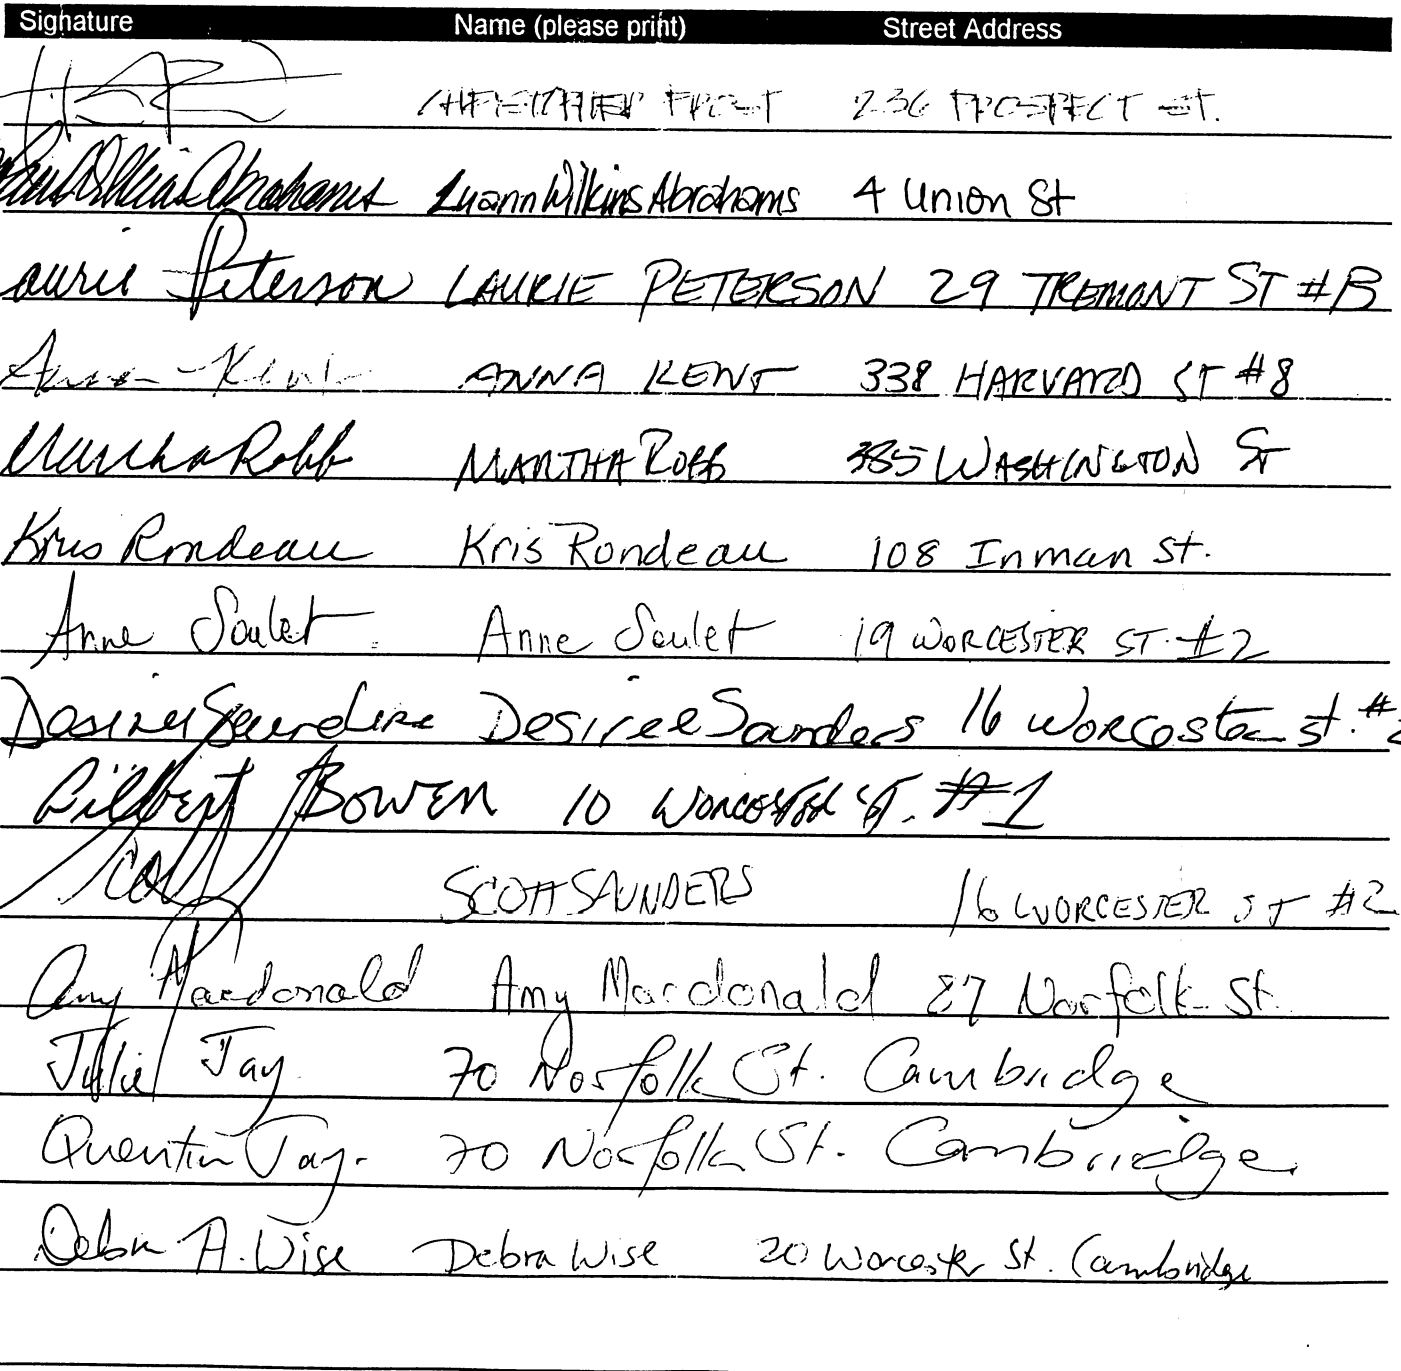 Signature Name (please print) Street Address
FROST 236 PROSPECT ST.
Luann Wilkins Abrahams 4 Union St
aurie Peterson LAURIE PETERSON 29 TREMONT ST #B
Anna Kent ANNA KENT 338 HARVARD ST #8
Martha Robb MARTHA ROBB 385 WASHINGTON ST
Kris Rondeau Kris Rondeau 108 Inman St.
Anne Soulet Anne Soulet 19 WORCESTER ST. #2
Desiree Saunders Desiree Saunders 16 Worcester St. #2
Gilbert Bowen 10 Worcester St. #1
SCOTT SAUNDERS 16 WORCESTER ST #2
Amy Macdonald Amy Macdonald 87 Norfolk St.
Julie Jay 70 Norfolk St. Cambridge
Quentin Jay. 70 Norfolk St. Cambridge
Debra A. Wise Debra Wise 20 Worcester St. Cambridge